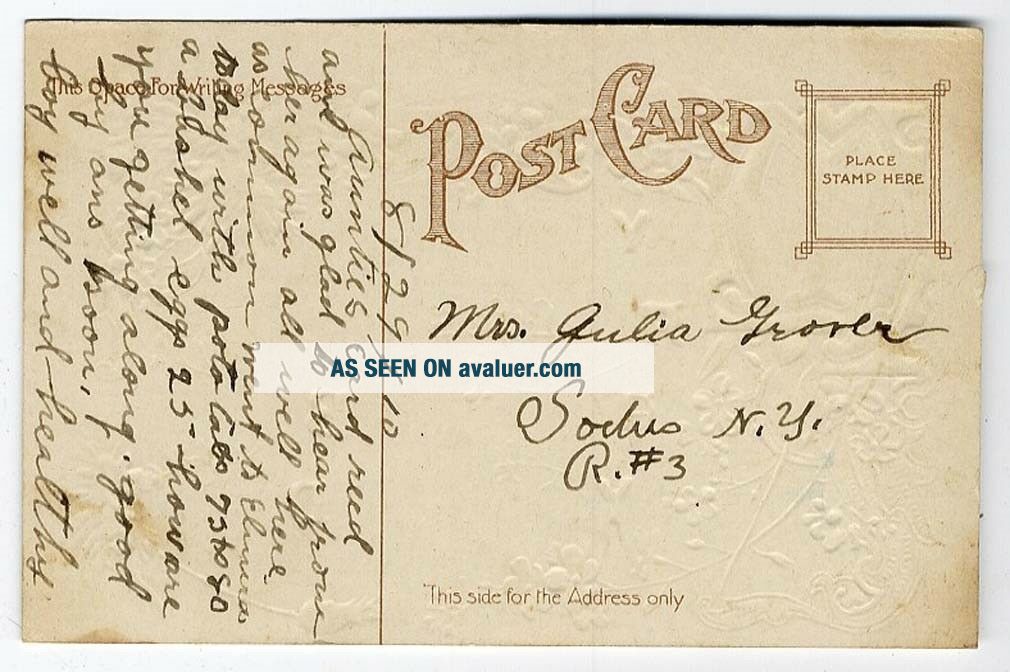 This Space For Writing Messages
POST CARD
PLACE
STAMP HERE
8/29/10
Aunties card recd
and was glad to hear from
her again all well here
as common went to Elmira
with potatoes 75 to 80
a bushel eggs 25 how are
you getting along. good
by ans soon,
boy well and healthy.
Mrs. Julia Grover
AS SEEN ON avaluer.com
Sodus N.Y.
R. #3
This side for the Address only